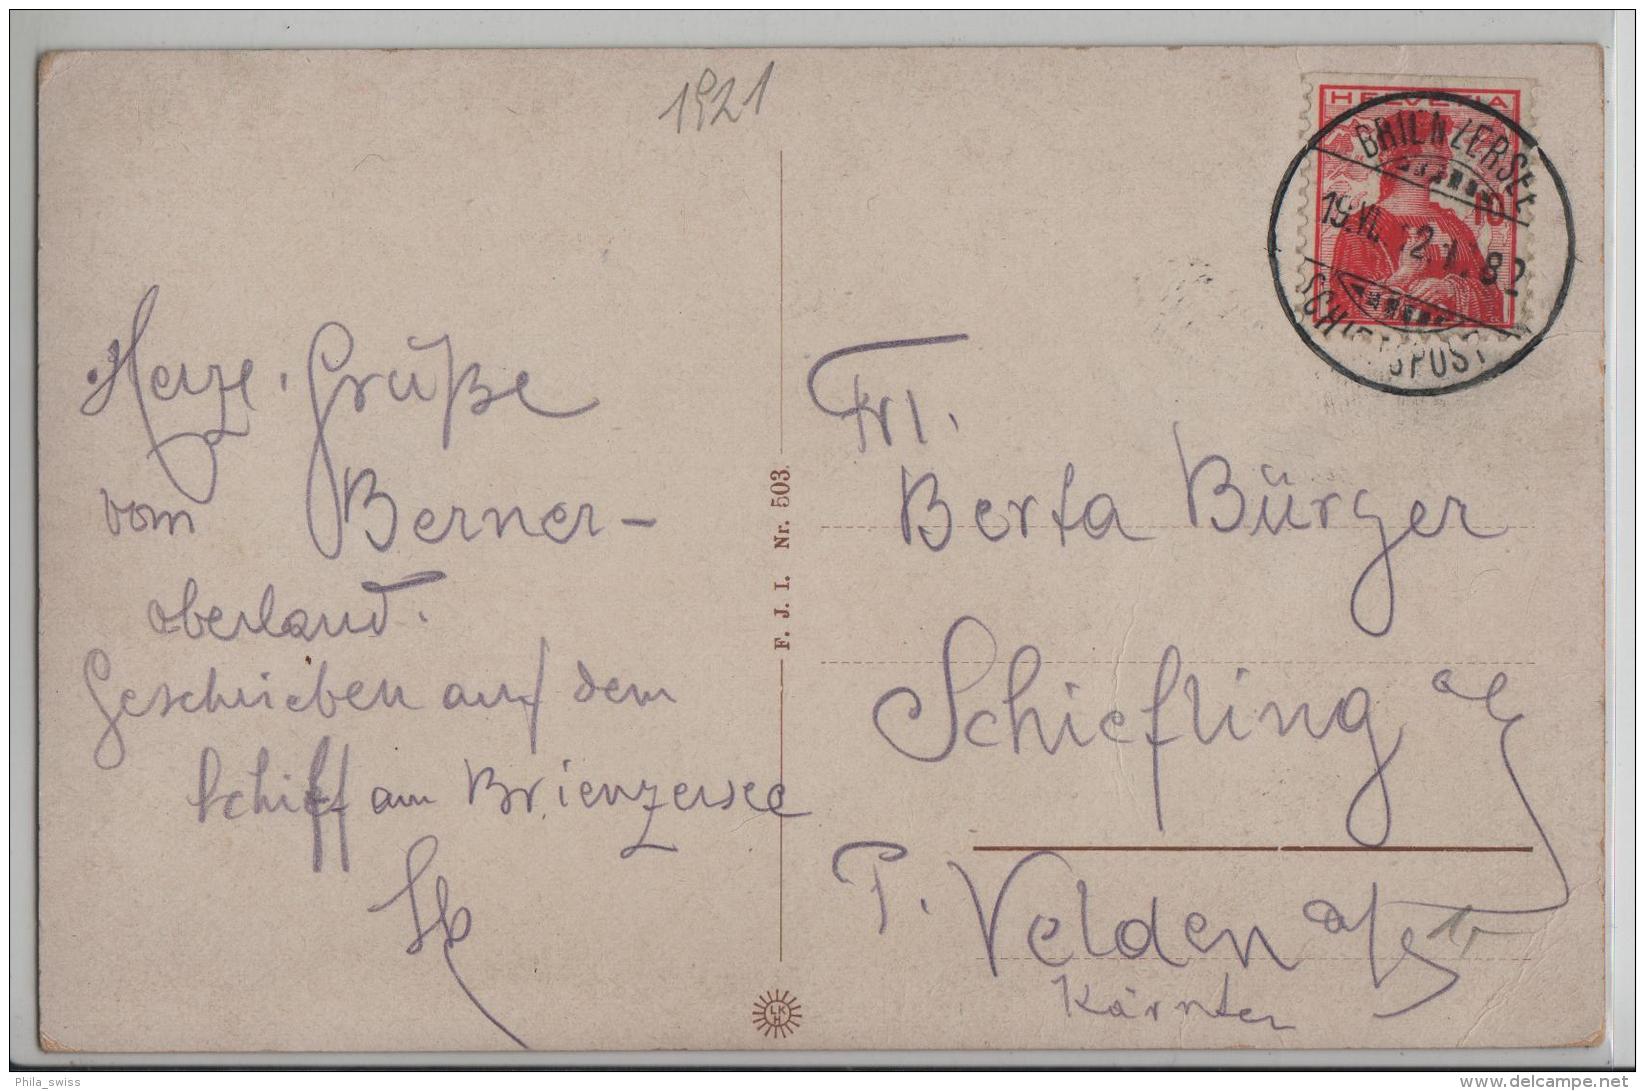 1921
HELVETIA
10
BRIENZERSEE
19.VI.12.1. 82
SCHIFFSPOST
Herzl. Grüße
vom Berner-
oberland.
Geschrieben auf dem
Schiff am Brienzersee
F. J. I. Nr. 503.
Frl.
Berta Bürger
Schiefling a/S
P. Velden a/S
Kärnten
LKH
Phila_swiss
delcampe.net